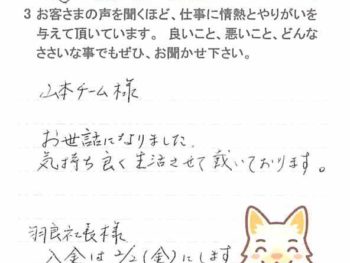 3 お客さまの声を聞くほど、仕事に情熱とやりがいを
与えて頂いています。 良いこと、悪いこと、どんな
ささいな事でもぜひ、お聞かせ下さい。
山本チーム様
お世話になりました。
気持ち良く生活させて戴いております。
羽良社長様
入金は2/2(金)にします